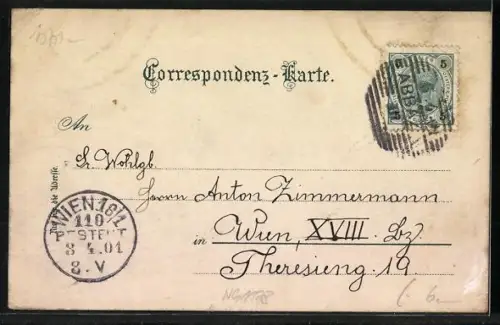 Correspondenz-Karte.
5 5
ABB
An
Sr. Wohlgb.
Herrn Anton Zimmermann
in Wien, XVIII. Bz.
Theresieng. 19
die Adresse.
WIEN 18/1
110
BESTELLT
3 4.01
8.V